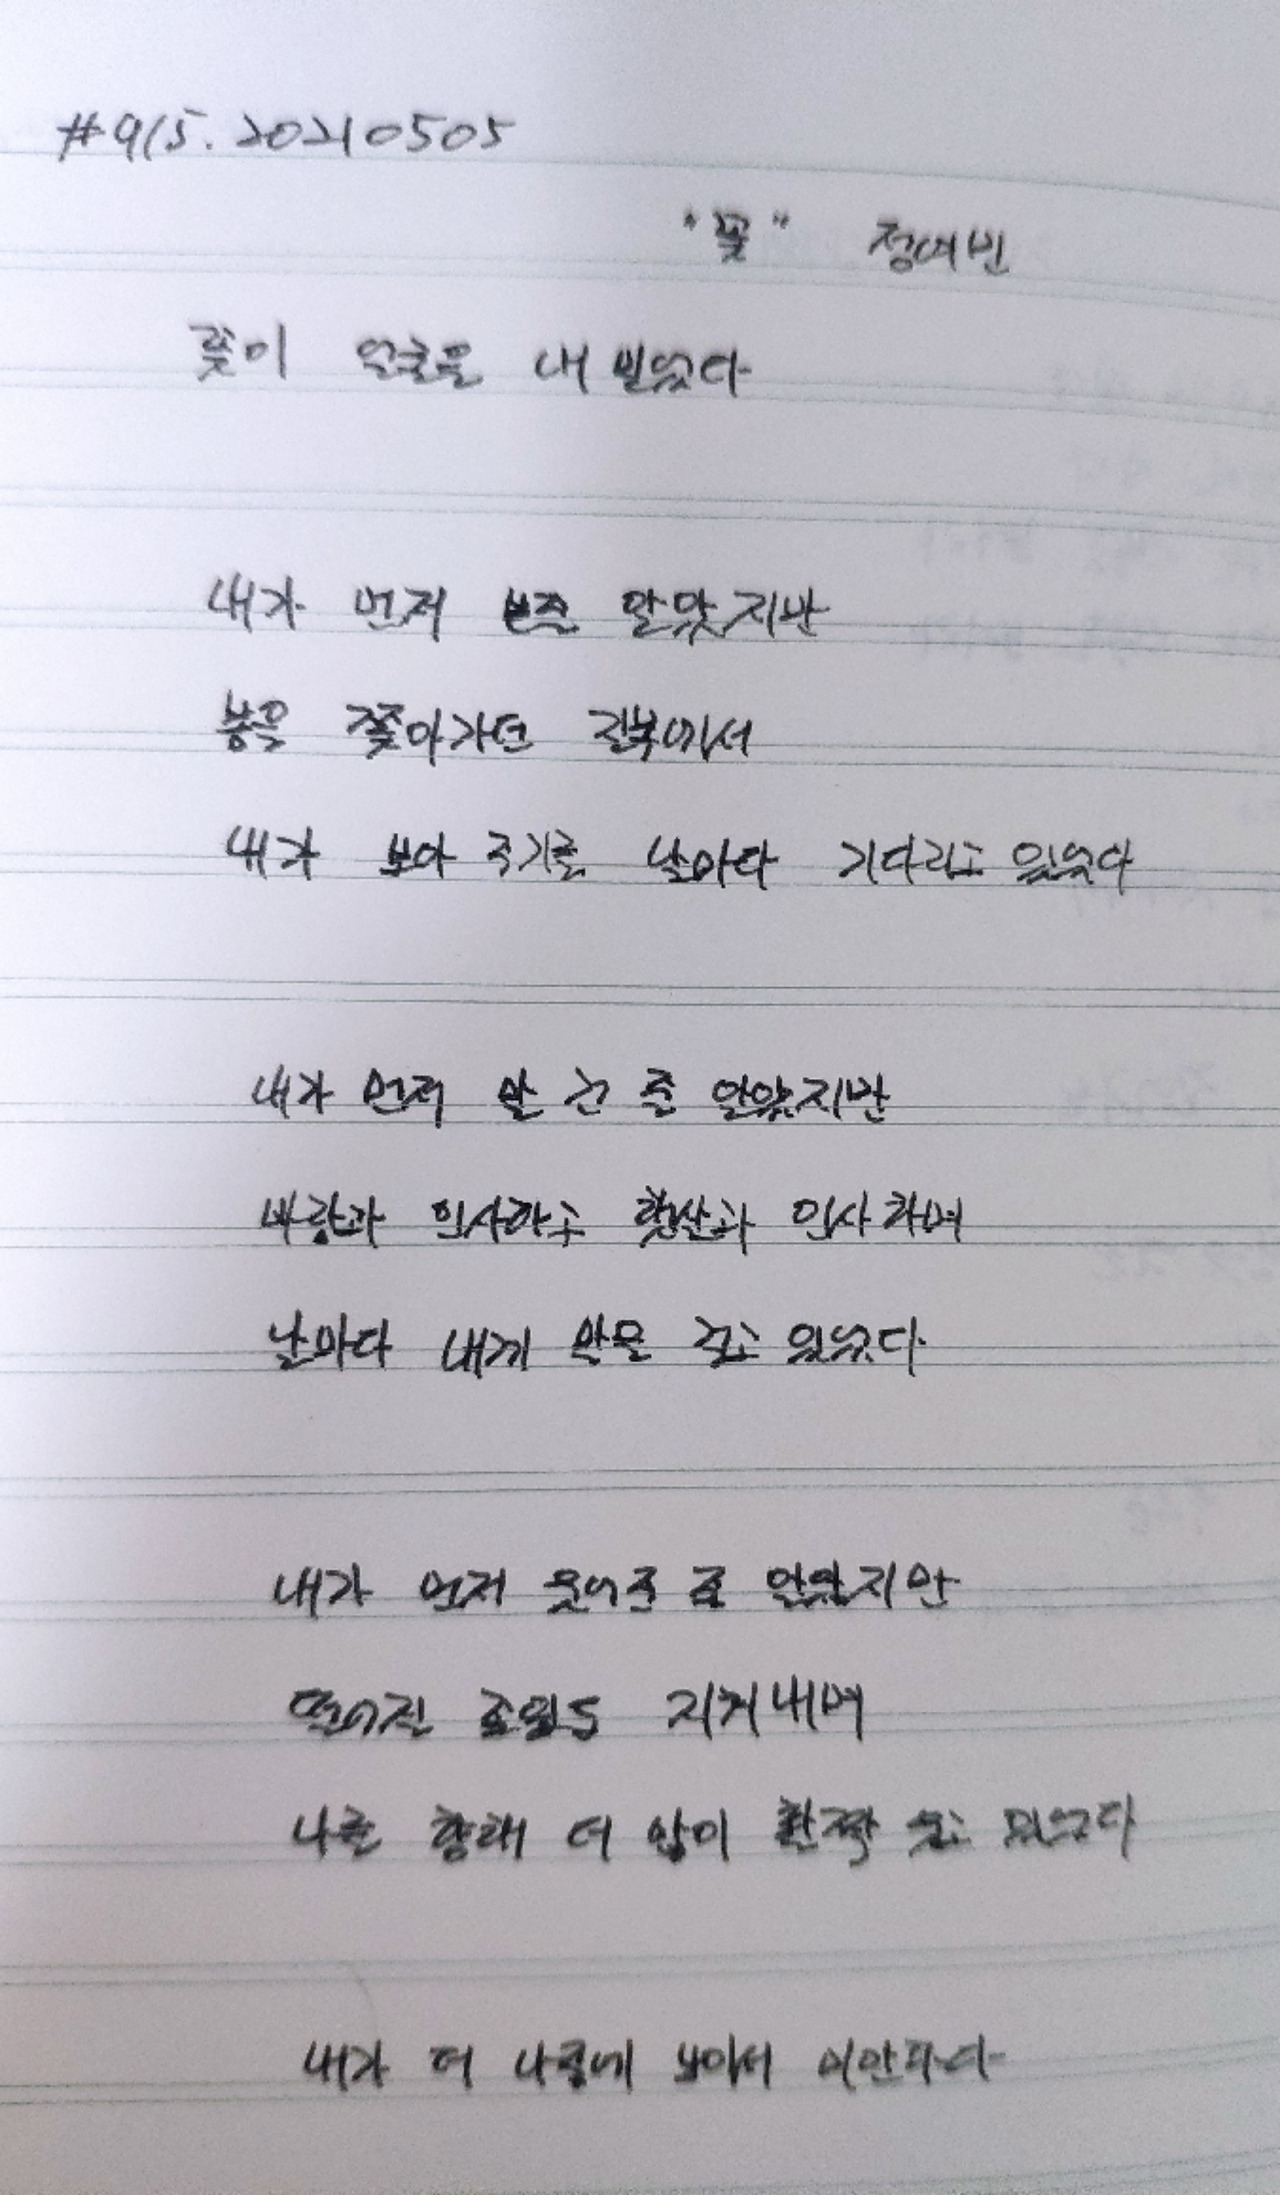 #915. 20210505
"꽃" 정여민
꽃이 얼굴을 내밀었다
내가 먼저 본 줄 알았지만
봄을 쫓아가던 길목에서
내가 보아 주기를 날마다 기다리고 있었다
내가 먼저 말 건 줄 알았지만
바람과 인사하고 햇살과 인사하며
날마다 내게 말을 걸고 있었다
내가 먼저 웃어준 줄 알았지만
떨어진 꽃잎도 지켜내며
나를 향해 더 많이 활짝 웃고 있었다
내가 더 나중에 보아서 미안하다